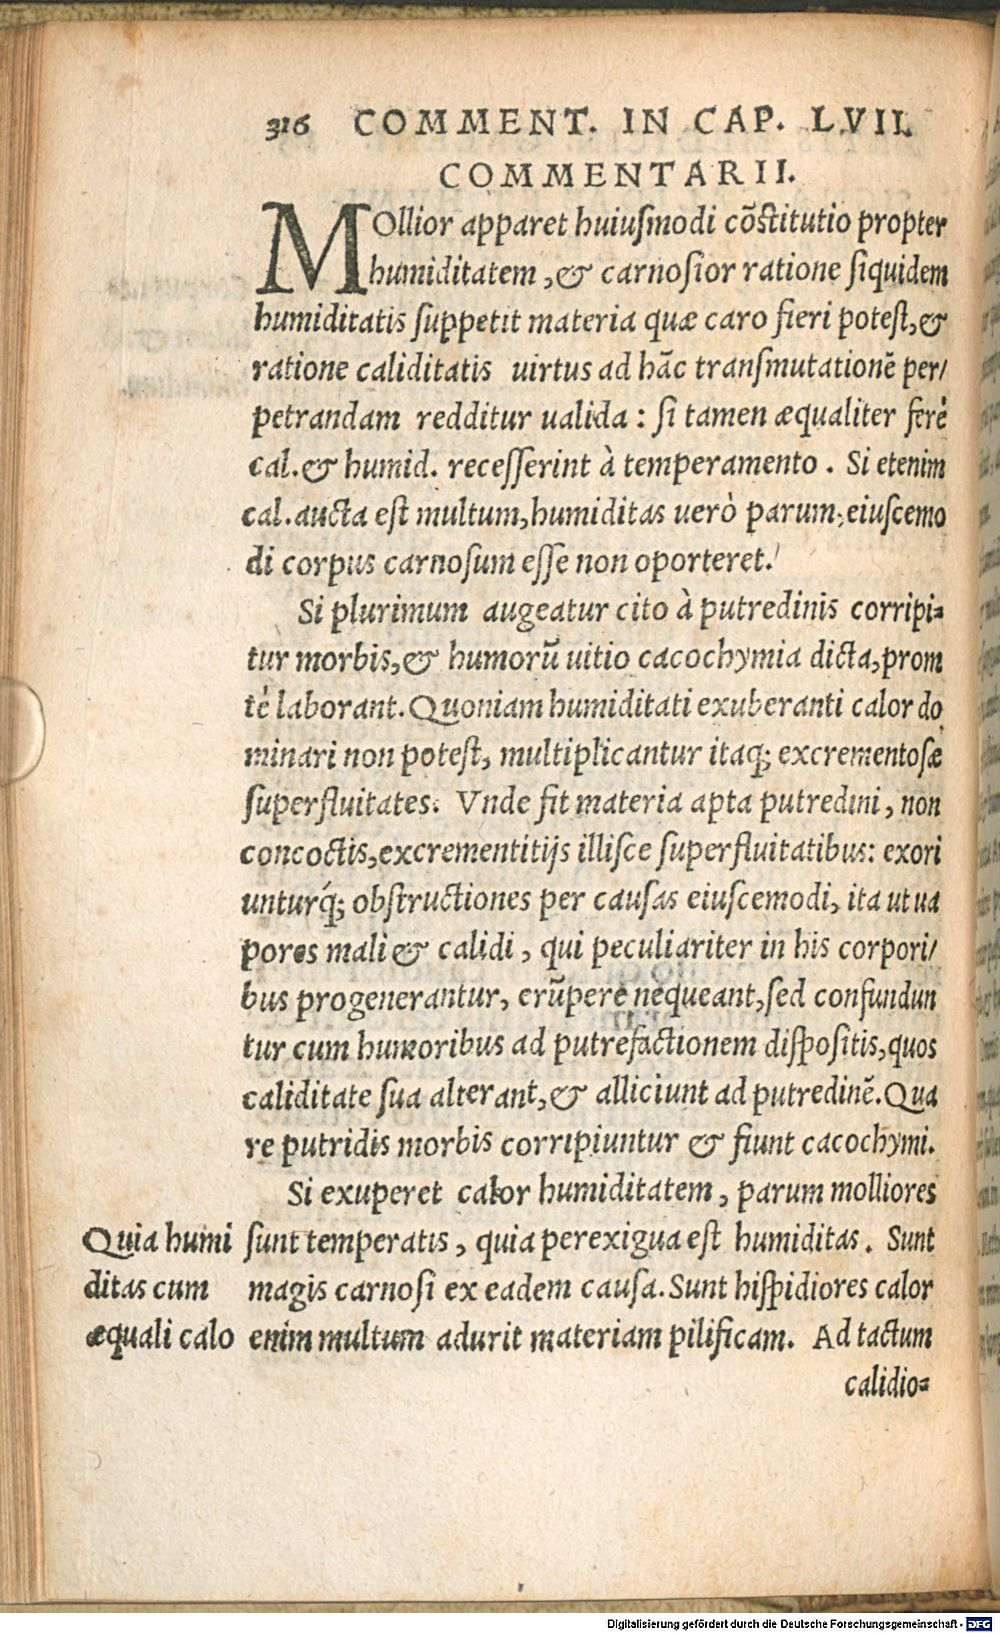 316 COMMENT. IN CAP. LVII.
COMMENTARII.
MOllior apparet huiusmodi cõstitutio propter
humiditatem, & carnosior ratione siquidem
humiditatis suppetit materia quæ caro fieri potest, &
ratione caliditatis uirtus ad hãc transmutationẽ per/
petrandam redditur ualida: si tamen æqualiter ferè
cal. & humid. recesserint à temperamento. Si etenim
cal. aucta est multum, humiditas uerò parum, eiuscemo
di corpus carnosum esse non oporteret.
Si plurimum augeatur cito à putredinis corripi-
tur morbis, & humorũ uitio cacochymia dicta, prom
tè laborant. Quoniam humiditati exuberanti calor do
minari non potest, multiplicantur itaq; excrementosæ
superfluitates. Vnde fit materia apta putredini, non
concoctis, excrementitijs illisce superfluitatibus: exori
unturq́; obstructiones per causas eiuscemodi, ita ut ua
pores mali & calidi, qui peculiariter in his corpori/
bus progenerantur, erũpere nequeant, sed confundun
tur cum humoribus ad putrefactionem dispositis, quos
caliditate sua alterant, & alliciunt ad putredinẽ. Qua
re putridis morbis corripiuntur & fiunt cacochymi.
Si exuperet calor humiditatem, parum molliores
sunt temperatis, quia perexigua est humiditas. Sunt
magis carnosi ex eadem causa. Sunt hispidiores calor
enim multum adurit materiam pilificam. Ad tactum
calidio-
Quia humi
ditas cum
æquali calo
Digitalisierung gefördert durch die Deutsche Forschungsgemeinschaft - DFG